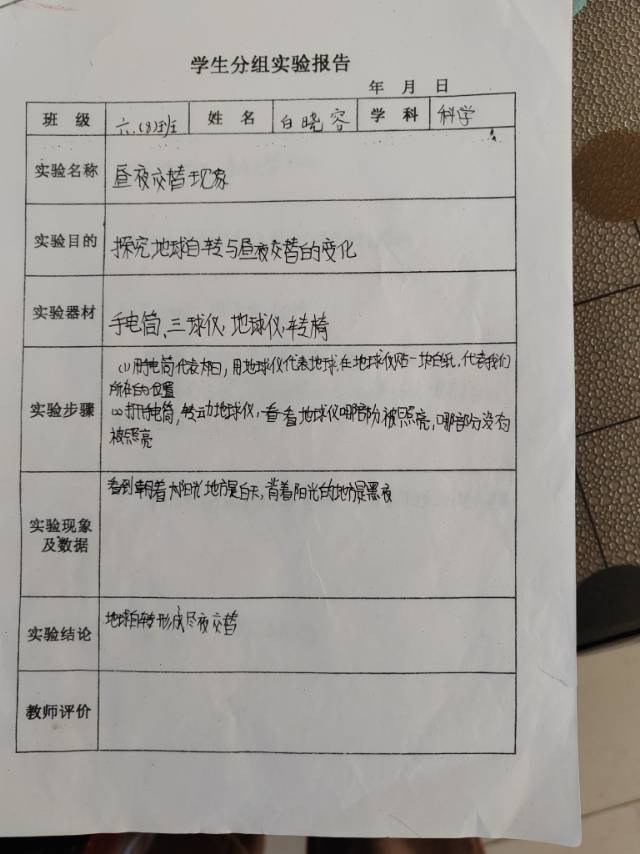 学生分组实验报告
年 月 日
班 级 六.(8)班 姓 名 白晓容 学 科 科学
实验名称 昼夜交替现象
实验目的 探究地球自转与昼夜交替的变化
实验器材 手电筒、三球仪、地球仪、转椅
(1)用手电筒代表太阳,用地球仪代表地球.在地球仪贴一块白纸,代表我们
所在的位置
实验步骤 (2)打开手电筒,转动地球仪,看看地球仪哪部分被照亮,哪部分没有
被照亮
看到朝着太阳光地方是白天,背着阳光的地方是黑夜
实验现象
及数据
实验结论 地球自转形成昼夜交替
教师评价